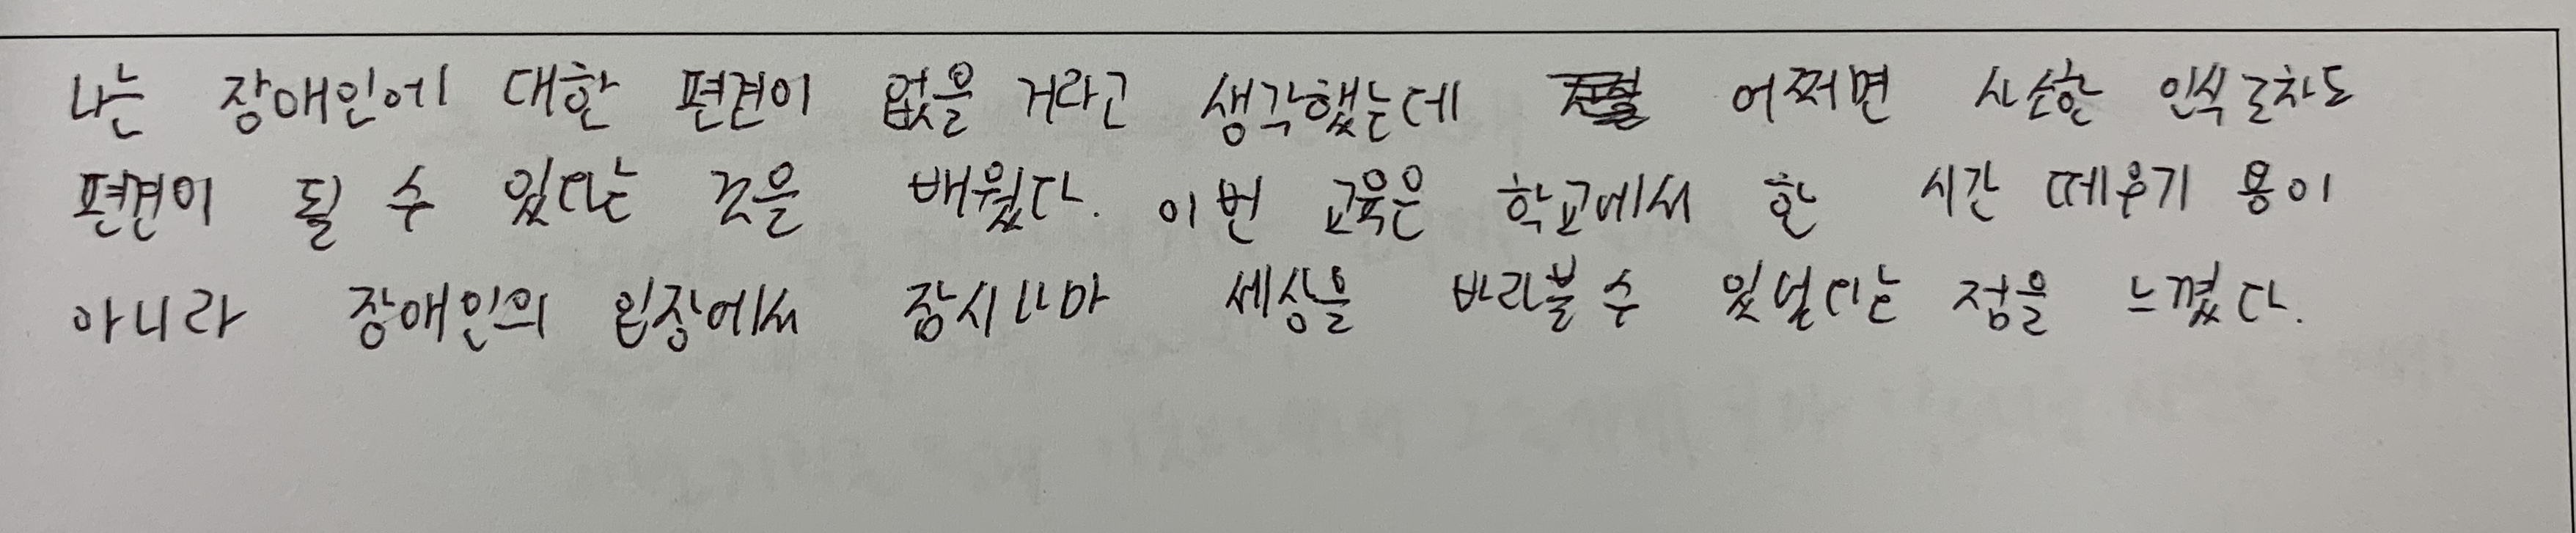 나는 장애인에 대한 편견이 없을 거라고 생각했는데 어쩌면 사소한 인식조차도
편견이 될 수 있다는 것을 배웠다. 이번 교육은 학교에서 한 시간 떼우기 용이
아니라 장애인의 입장에서 잠시나마 세상을 바라볼 수 있었다는 점을 느꼈다.